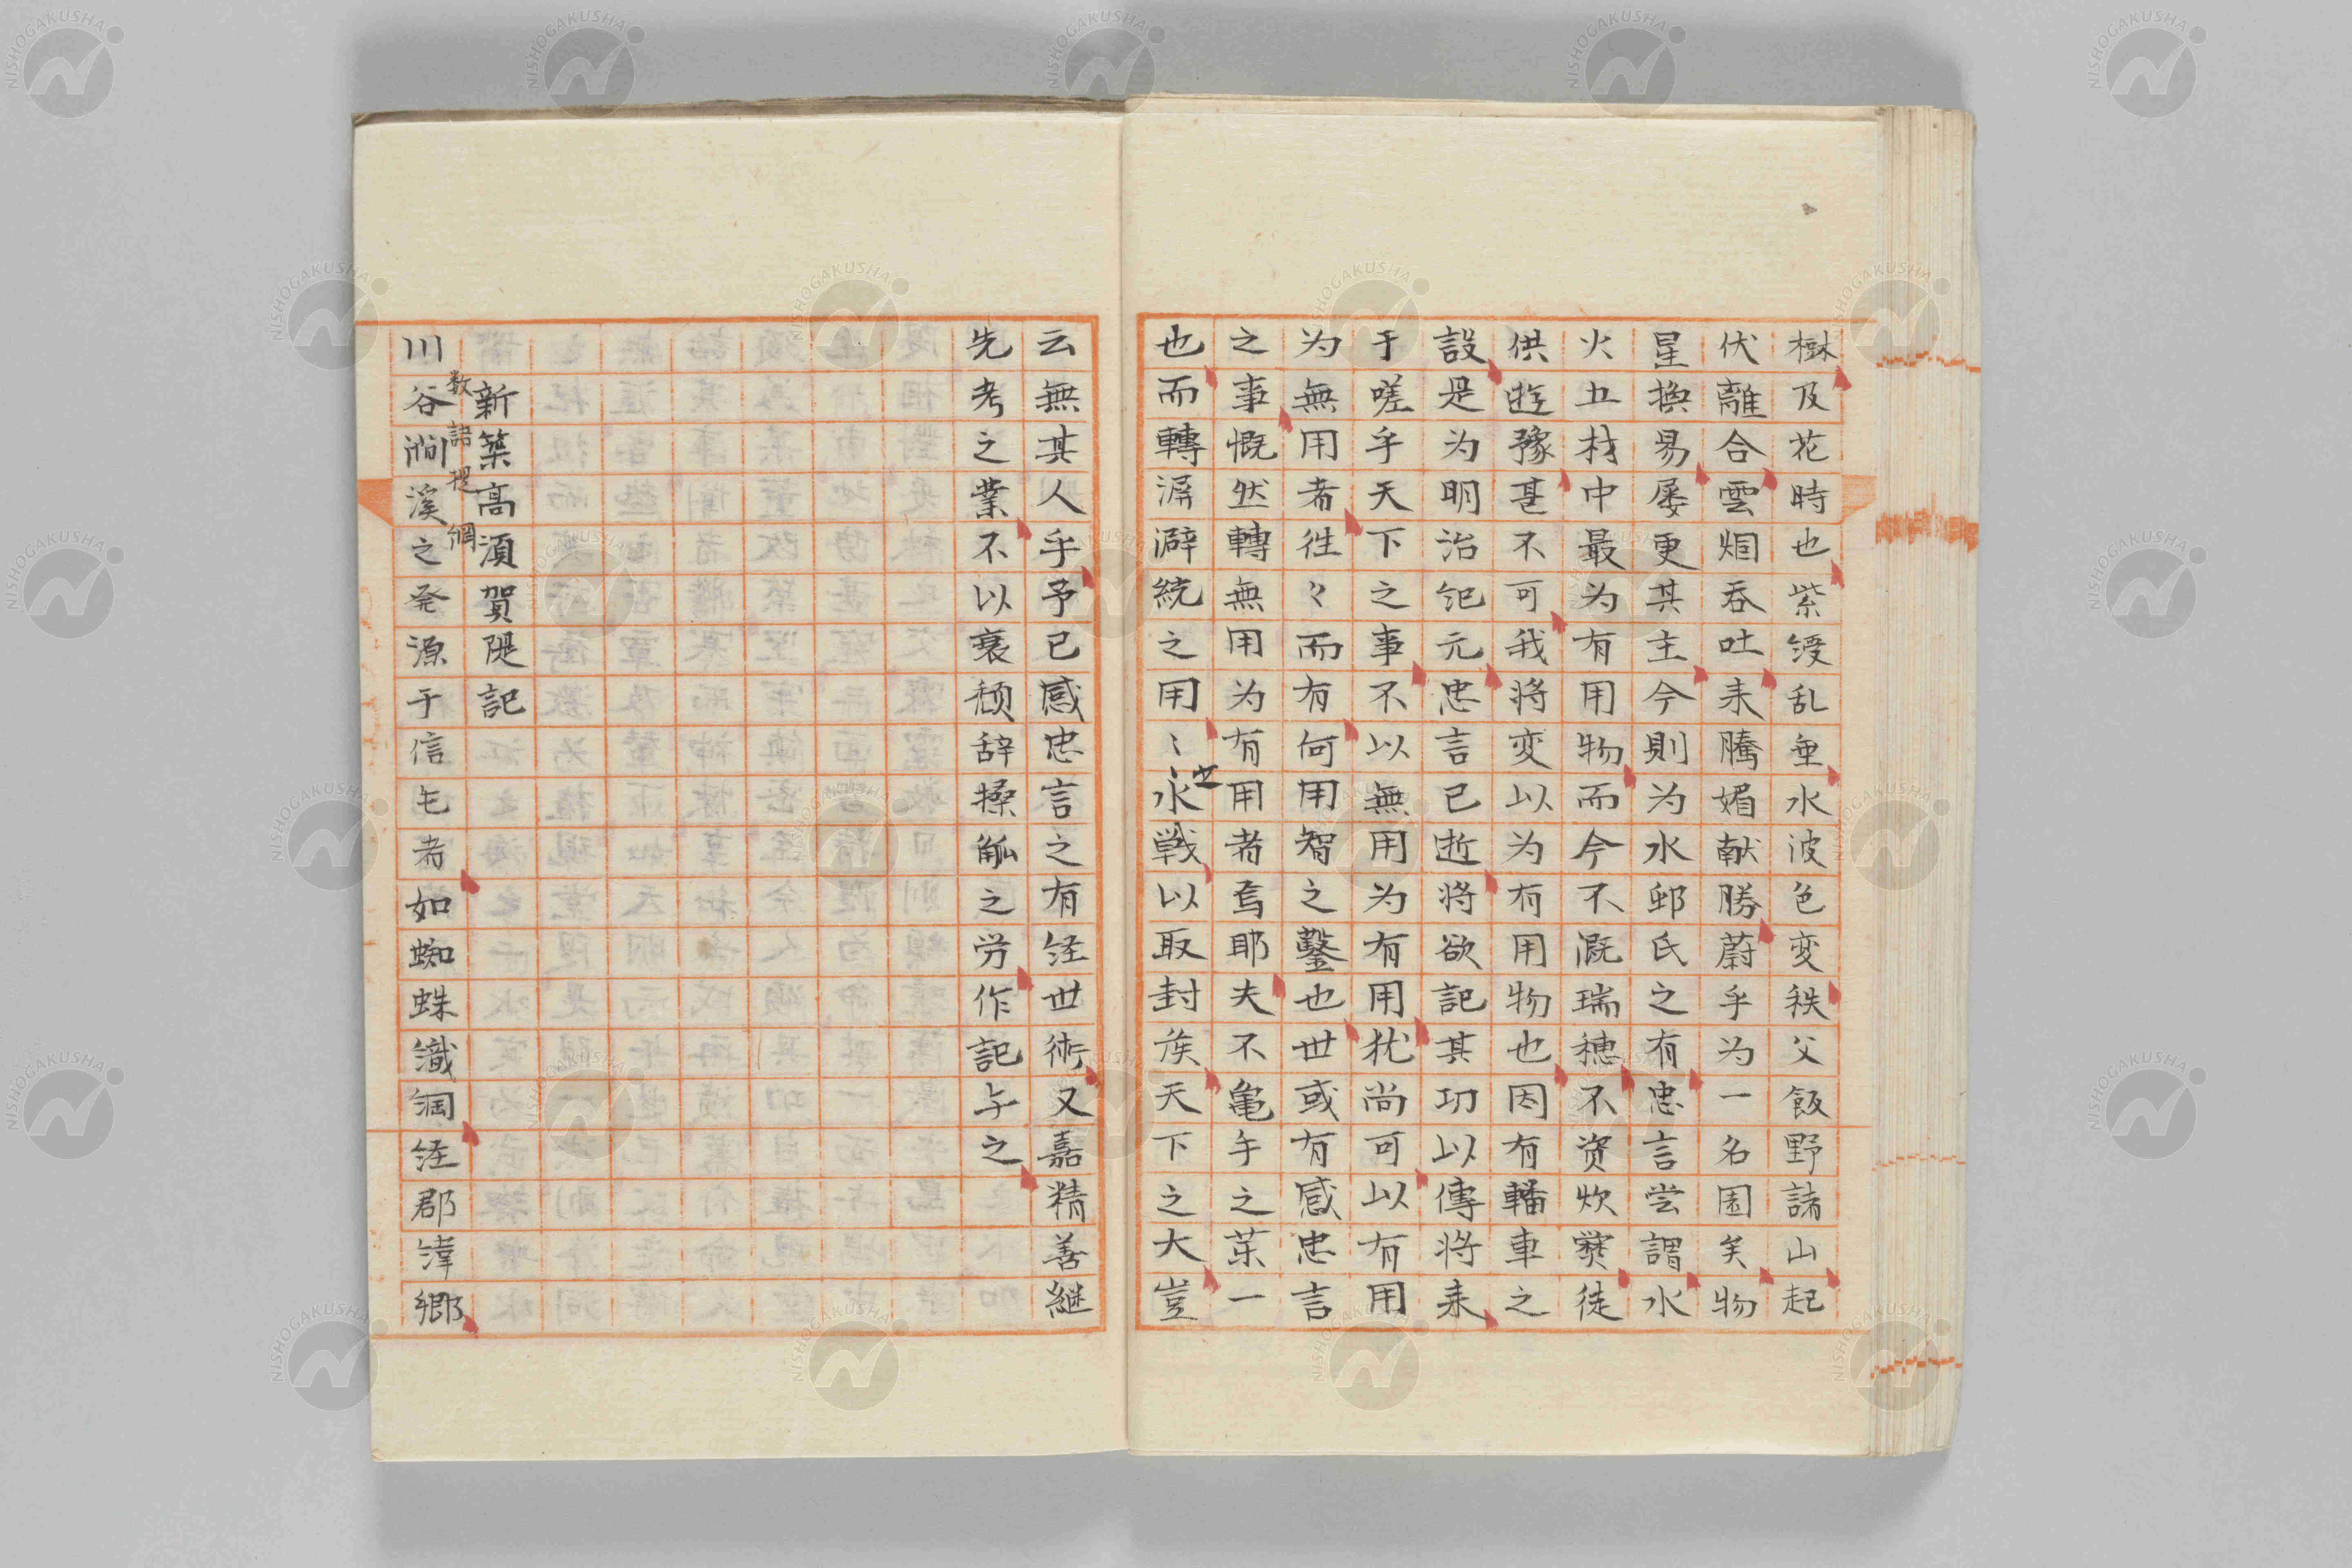 樹及花時也紫綬乱垂水波色変秩父飯野諸山起
伏離合雲烟吞吐来騰媚献勝蔚乎为一名园矣物
星換易屡更其主今則为水郵氏之有忠言尝謂水
火五材中最为有用物而今不溉瑞穂不资炊爨徒
供遊豫甚不可我将変以为有用物也因有轓車之
設是为明治紀元忠言已逝将欲記其功以傳将来
于嗟乎天下之事不以無用为有用犹尚可以有用
为無用者往々而有何用智之鑿也世或有感忠言
之事慨然轉無用为有用者焉耶夫不亀手之薬一
也而轉洴澼絖之用〻水戦以取封矦天下之大豈
世
云無其人乎予已感忠言之有経世術又嘉精善継
先考之業不以衰頽辞操觚之労作記与之
新築高須賀隄記
数語提綱
川谷澗溪之発源于信毛者如蜘蛛織網経郡緯郷
NISHOGAKUSHA